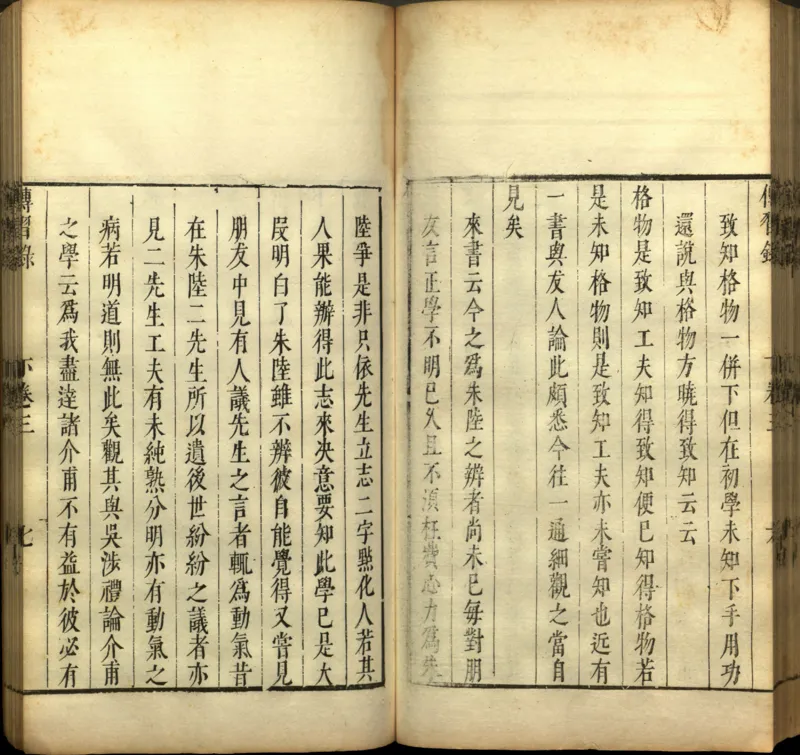 傳習錄
下卷三
致知格物一併下但在初學未知下手用功
還說與格物方曉得致知云云
格物是致知工夫知得致知便已知得格物若
是未知格物則是致知工夫亦未嘗知也近有
一書與友人論此頗悉今往一通細觀之當自
見矣
來書云今之為朱陸之辨者尚未已每對朋
友言正學不明已久且不須枉費心力為朱
陸爭是非只依先生立志二字點化人若其
人果能辦得此志來決意要知此學已是大
叚明白了朱陸雖不辨彼自能覺得又嘗見
朋友中見有人議先生之言者輒為動氣昔
在朱陸二先生所以遺後世紛紛之議者亦
見二先生工夫有未純熟分明亦有動氣之
病若明道則無此矣觀其與吳涉禮論介甫
之學云為我盡達諸介甫不有益於彼必有
傳習錄
下卷三
七